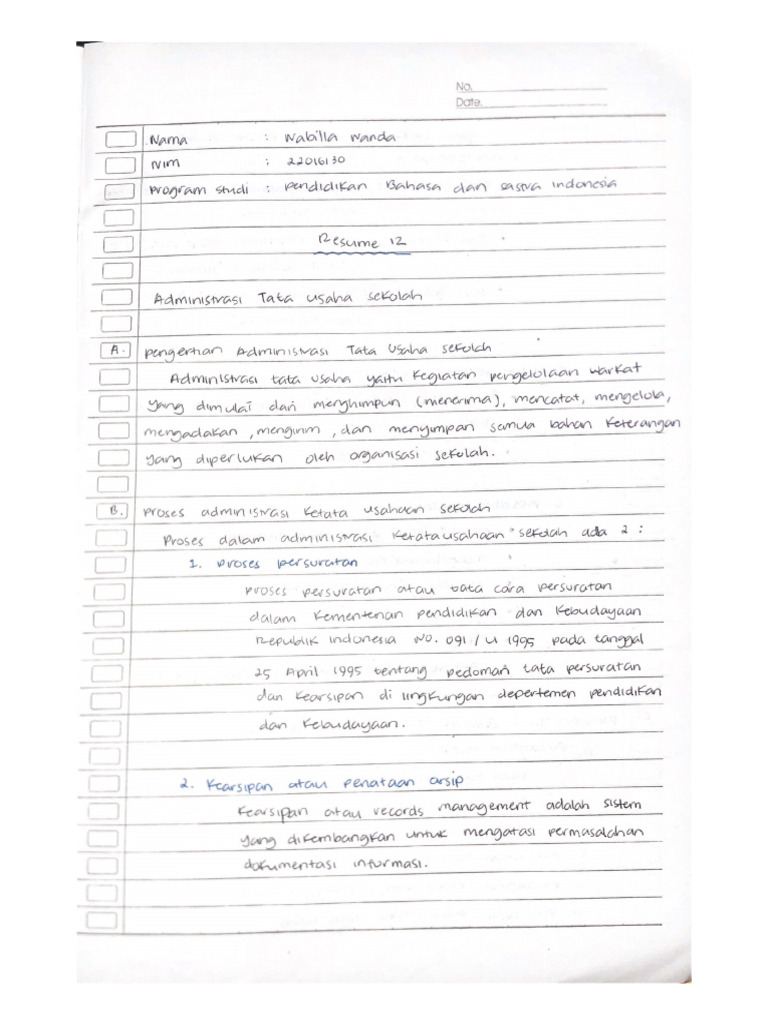 No.
Date.
Nama : Nabilla Wanda
NIM : 22016130
Program Studi : Pendidikan Bahasa dan Sastra Indonesia
Resume 12
Administrasi Tata Usaha Sekolah
A. Pengertian Administrasi Tata Usaha Sekolah
Administrasi tata usaha yaitu kegiatan pengelolaan warkat
yang dimulai dari menghimpun (menerima), mencatat, mengelola,
mengadakan, mengirim, dan menyimpan semua bahan keterangan
yang diperlukan oleh organisasi sekolah.
B. Proses administrasi ketata usahaan sekolah
Proses dalam administrasi ketatausahaan sekolah ada 2 :
1. Proses persuratan
Proses persuratan atau tata cara persuratan
dalam Kementerian pendidikan dan Kebudayaan
Republik Indonesia No. 091 / U 1995 pada tanggal
25 April 1995 tentang pedoman tata persuratan
dan kearsipan di lingkungan depertemen pendidikan
dan Kebudayaan.
2. Kearsipan atau penataan arsip
Kearsipan atau records management adalah sistem
yang dikembangkan untuk mengatasi permasalahan
dokumentasi informasi.